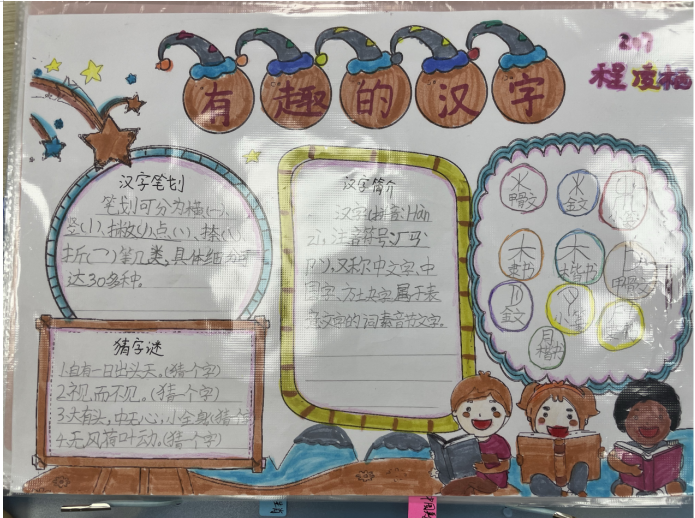 有趣的汉字
207
程
汉字笔划
笔划可分为横(一)、
竖(丨)、撇(丿)、点(丶)、捺(㇏)、
折(㇕)等几类,具体细分可
达30多种。
汉字简介
汉字(拼音:Hàn
zì,注音符号:ㄏㄢˋ
ㄗˋ),又称中文字、中
国字、方块字,属于表
意文字的词素音节文字。
猜字谜
1.自有一日出头天。(猜一个字)
2.视而不见。(猜一个字)
3.大有头,中无心,小全身(猜一
4.无风荷叶动。(猜一个字)
甲骨文
金文
小篆
木
隶书
木
楷书
甲骨文
金文
小篆
月
楷书